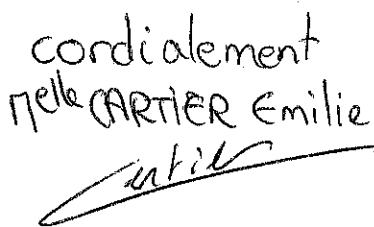 cordialement
Melle CARTIER Emilie
Cartier